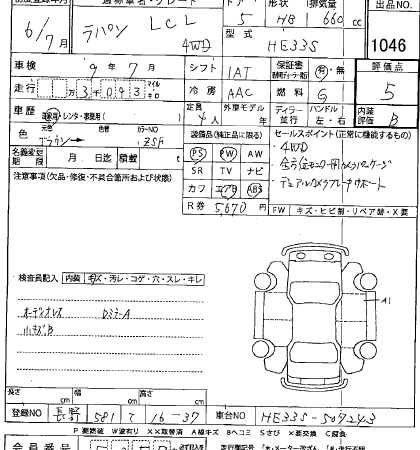 初度登録年月 通称車名・グレード ドア 形状 排気量 出品NO
6/7月 ラパン LCL 4WD 5 HB 660 cc
型式 HE33S 1046
車検 9年7月 シフト IAT 保証書 有・無 評価点
走行 万3千093 マイル キロ 冷房 AAC 燃料 G 5
車歴 自家用・レンタ・事業用( ) 定員 4人 外車モデル 年 ディーラー 並行 ハンドル 左・右 内装評価 B
色 元色 ブラウン → カラーNO ZSH 装備品(純正品に限る) セールスポイント(正常に機能するもの)
名義変更期限 月 日迄 積載 t PS PW AW ①4WD
注意事項(欠品・修復・不具合箇所および状態) SR TV ナビ
カワ エアB ABS ・デュアルカメラブレーキサポート
R券 5670円 FW キズ・ヒビ割・リペア跡・X要
検査員記入 内装 キズ・汚レ・コゲ・穴・スレ・キレ
A1
オーディオレス
小キズB
長さ cm 幅 cm 高さ cm
登録NO 長野 581 て 16-37 車台NO HE33S-507243
P要塗装 W波有り XX取替済 A線キズ Bヘコミ Sサビ X要交換 C腐食
会員番